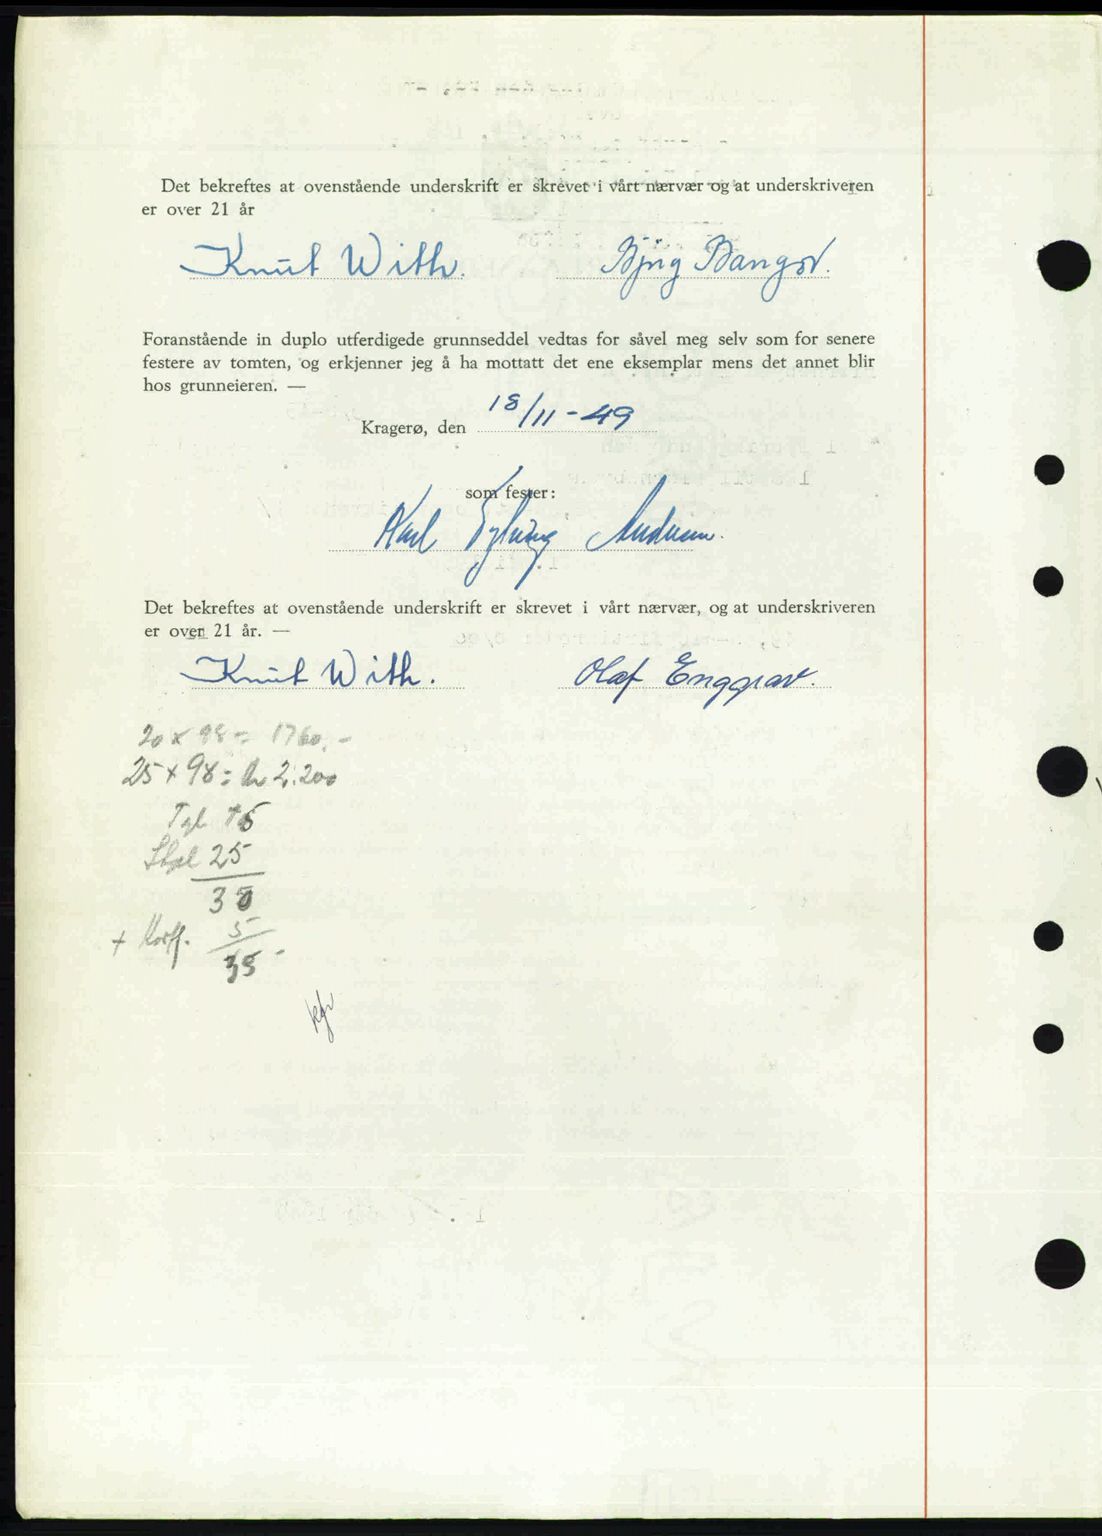 Det bekreftes at ovenstående underskrift er skrevet i vårt nærvær og at underskriveren
er over 21 år
Knut With. Bjørg Bangsr.
Foranstående in duplo utferdigede grunnseddel vedtas for såvel meg selv som for senere
festere av tomten, og erkjenner jeg å ha mottatt det ene eksemplar mens det annet blir
hos grunneieren. —
Kragerø, den 18/11-49
som fester:
Karl Andersen.
Det bekreftes at ovenstående underskrift er skrevet i vårt nærvær, og at underskriveren
er over 21 år. —
Knut With. Olaf Enggrav.
20 x 98 = 1760.-
25 x 98 = kr 2.200
Tgl
Stpl 25
+ 5
35 -